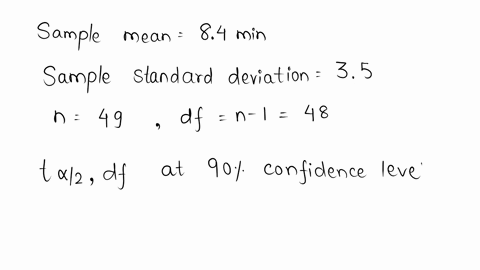 Sample mean = 8.4 min
Sample standard deviation = 3.5
n = 49 , df = n-1 = 48
t α/2, df at 90% confidence leve